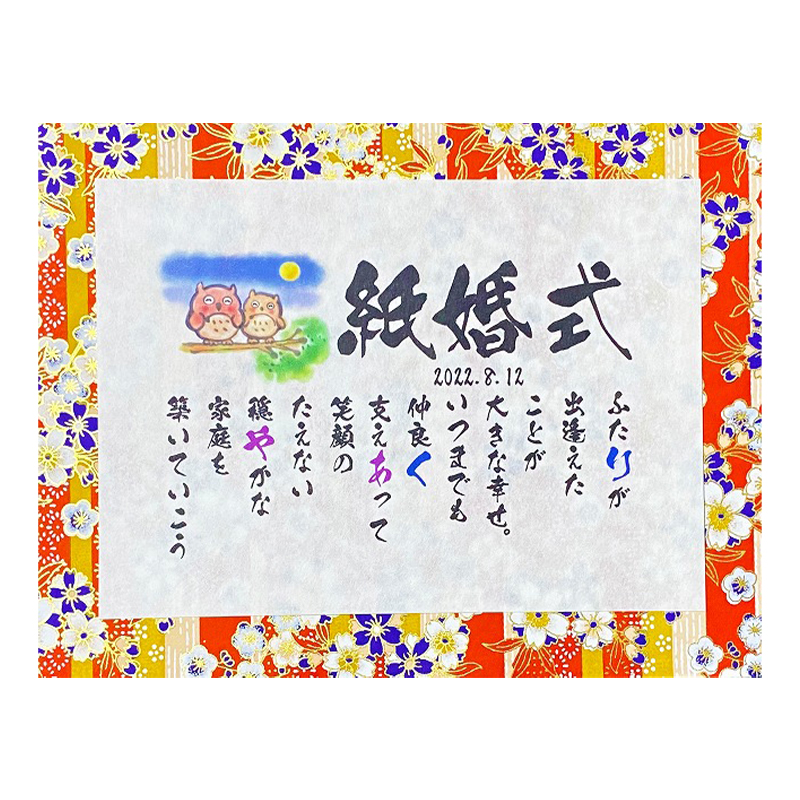 紙婚式
2022.8.12
ふたりが
出逢えた
ことが
大きな幸せ。
いつまでも
仲良く
支えあって
笑顔の
たえない
穏やかな
家庭を
築いていこう